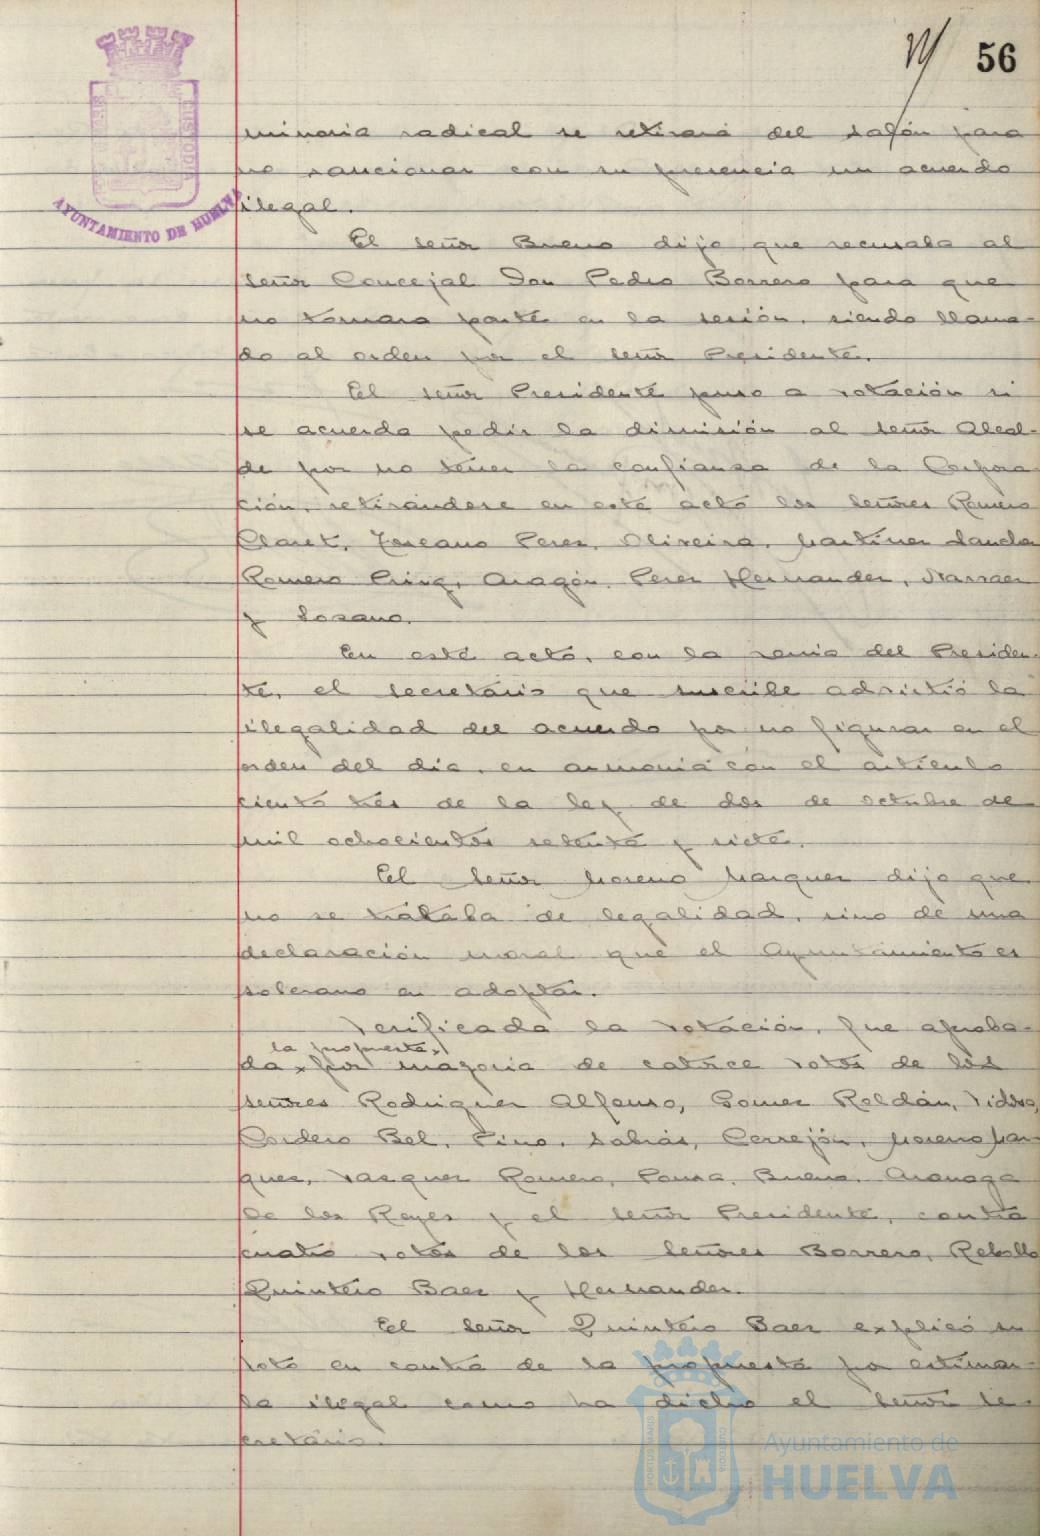 56
minoria radical se retirará del salón para
no sancionar con su presencia un acuerdo
ilegal.
El señor Bueno dijo que recusaba al
señor Concejal Don Pedro Borrero para que
no tomara parte en la sesión, siendo llama-
do al orden por el señor Presidente.
El señor Presidente puso a votación si
se acuerda pedir la dimisión al señor Alcal-
de por no tener la confianza de la Corpora
ción, retirándose en este acto los señores Romero
Claret, Toscano Perez, Oliveira, Martinez Sanchez
Romero Prieg, Aragón, Perez Hernandez, Narvaez
y Lozano.
En este acto, con la venia del Presiden-
te, el secretario que suscribe advirtió la
ilegalidad del acuerdo por no figurar en el
orden del dia, en armonia con el articulo
ciento tres de la ley de dos de octubre de
mil ochocientos setenta y siete.
El señor Moreno Marquez dijo que
no se trataba de legalidad, sino de una
declaración moral que el Ayuntamiento es
soberano en adoptar.
Verificada la votación, fue aproba-
la propuesta x
da x por mayoria de catorce votos de los
señores Rodriguez Alfonso, Gomez Roldán, Vidosa,
Cordero Bel, Pino, Sabrás, Cerrejón, Moreno Mar-
quez, Vazquez Romero, Ponza, Bueno, Aranaga
de los Reyes y el señor Presidente, contra
cuatro votos de los señores Borrero, Rebollo
Quintero Baez y Hernandez.
El señor Quintero Baez explicó su
voto en contra de la propuesta por estimar-
la ilegal como ha dicho el señor Se-
cretario.
AYUNTAMIENTO DE HUELVA
PORTUS MARIS
CUSTODIA
Ayuntamiento de
HUELVA